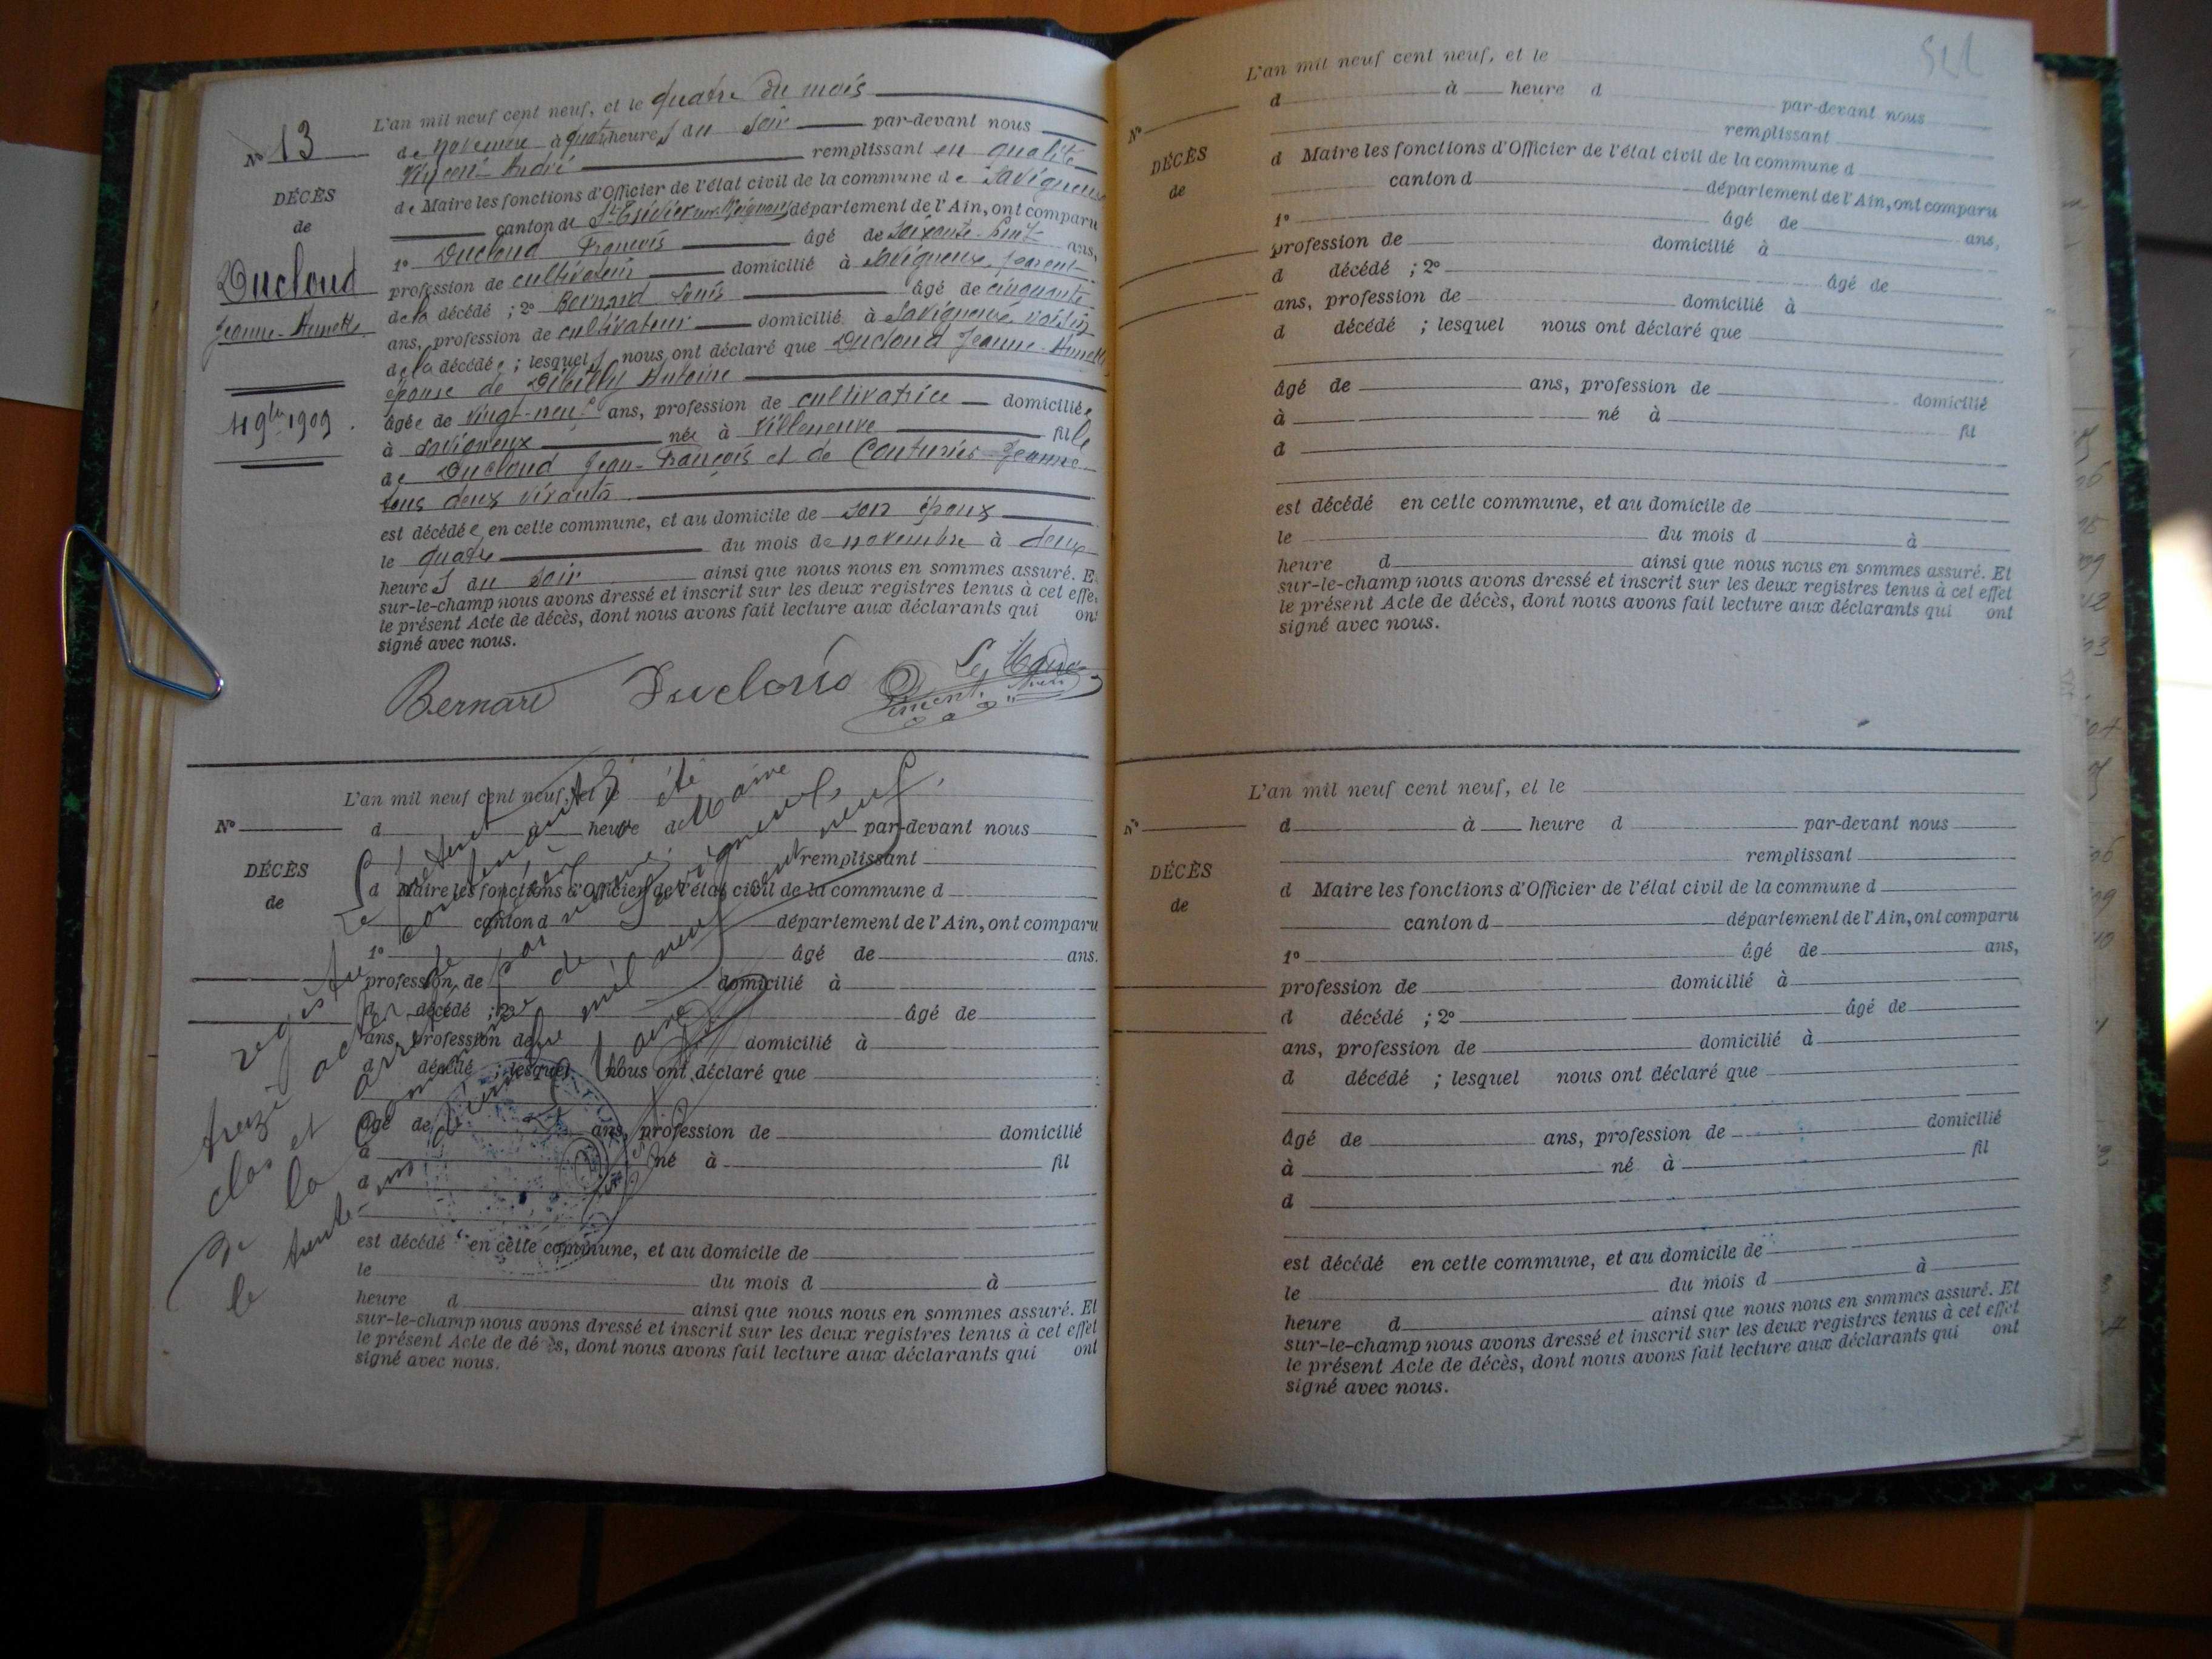 L'an mil neuf cent neuf, et le quatre du mois
de novembre à quatre heures du soir par-devant nous
Vincent André remplissant en qualité
de Maire les fonctions d'Officier de l'état civil de la commune de Savigneux
canton de St Trivier sur Moignans département de l'Ain, ont comparu
1° Ducloud François âgé de soixante-huit ans,
profession de cultivateur domicilié à Savigneux, parent
de la décédé ; 2° Bernard Louis âgé de cinquante
ans, profession de cultivateur domicilié à Savigneux, voisin
de la décédée ; lesquels nous ont déclaré que Ducloud Jeanne-Annette
épouse de Antoine
âgée de vingt-neuf ans, profession de cultivatrice domiciliée
à Savigneux née à Villeneuve fille
de Ducloud Jean-François et de Couturier Jeanne
tous deux vivants
est décédée en cette commune, et au domicile de son époux
le quatre du mois de novembre à deux
heures du soir ainsi que nous nous en sommes assuré. Et
sur-le-champ nous avons dressé et inscrit sur les deux registres tenus à cet effet
le présent Acte de décès, dont nous avons fait lecture aux déclarants qui ont
signé avec nous.
Bernard Ducloud Le Maire
Vincent André
N° 13
DÉCÈS
de
Ducloud
Jeanne-Annette
4 9bre 1909
L'an mil neuf cent neuf, et le
d à heure d par-devant nous
remplissant
d Maire les fonctions d'Officier de l'état civil de la commune d
canton d département de l'Ain, ont comparu
1° âgé de ans.
profession de domicilié à
d décédé ; 2° âgé de
ans, profession de domicilié à
d décédé ; lesquel nous ont déclaré que
âgé de ans, profession de domicilié
à né à fil
d
est décédé en cette commune, et au domicile de
le du mois d à
heure d ainsi que nous nous en sommes assuré. Et
sur-le-champ nous avons dressé et inscrit sur les deux registres tenus à cet effet
le présent Acte de décès, dont nous avons fait lecture aux déclarants qui ont
signé avec nous.
N°
DÉCÈS
de
Le présent
registre contenant
treize actes a été
clos et arrêté par nous Maire
de la Commune de Savigneux,
le trente un décembre mil neuf cent neuf.
Le Maire
L'an mil neuf cent neuf, et le
d à heure d par-devant nous
remplissant
d Maire les fonctions d'Officier de l'état civil de la commune d
canton d département de l'Ain, ont comparu
1° âgé de ans,
profession de domicilié à
d décédé ; 2° âgé de
ans, profession de domicilié à
d décédé ; lesquel nous ont déclaré que
âgé de ans, profession de domicilié
à né à fil
d
est décédé en cette commune, et au domicile de
le du mois d à
heure d ainsi que nous nous en sommes assuré. Et
sur-le-champ nous avons dressé et inscrit sur les deux registres tenus à cet effet
le présent Acte de décès, dont nous avons fait lecture aux déclarants qui ont
signé avec nous.
N°
DÉCÈS
de
L'an mil neuf cent neuf, et le
d à heure d par-devant nous
remplissant
d Maire les fonctions d'Officier de l'état civil de la commune d
canton d département de l'Ain, ont comparu
1° âgé de ans,
profession de domicilié à
d décédé ; 2° âgé de
ans, profession de domicilié à
d décédé ; lesquel nous ont déclaré que
âgé de ans, profession de domicilié
à né à fil
d
est décédé en cette commune, et au domicile de
le du mois d à
heure d ainsi que nous nous en sommes assuré. Et
sur-le-champ nous avons dressé et inscrit sur les deux registres tenus à cet effet
le présent Acte de décès, dont nous avons fait lecture aux déclarants qui ont
signé avec nous.
N°
DÉCÈS
de